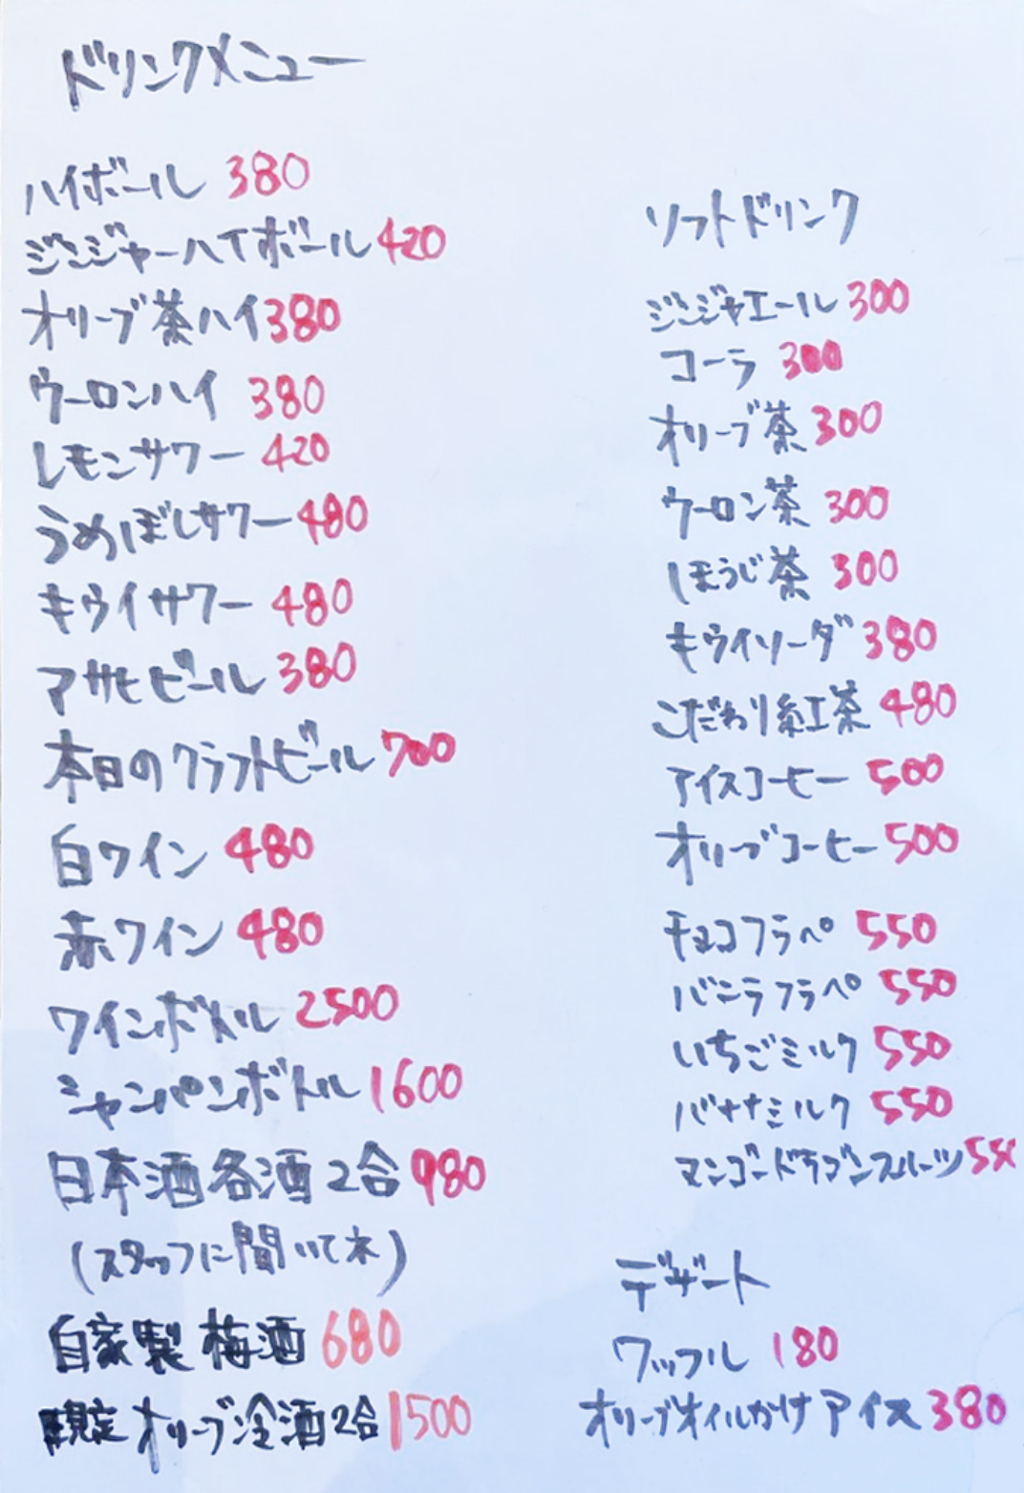 ドリンクメニュー
ハイボール 380
ジンジャーハイボール 420
オリーブ茶ハイ 380
ウーロンハイ 380
レモンサワー 420
うめぼしサワー 480
キウイサワー 480
アサヒビール 380
本日のクラフトビール 700
白ワイン 480
赤ワイン 480
ワインボトル 2500
シャンパンボトル 1600
日本酒各酒2合 980
(スタッフに聞いてネ)
自家製梅酒 680
限定オリーブ冷酒2合 1500
ソフトドリンク
ジンジャエール 300
コーラ 300
オリーブ茶 300
ウーロン茶 300
ほうじ茶 300
キウイソーダ 380
こだわり紅茶 480
アイスコーヒー 500
オリーブコーヒー 500
チョコフラペ 550
バニラフラペ 550
いちごミルク 550
バナナミルク 550
マンゴードラゴンフルーツ 550
デザート
ワッフル 180
オリーブオイルかけアイス 380